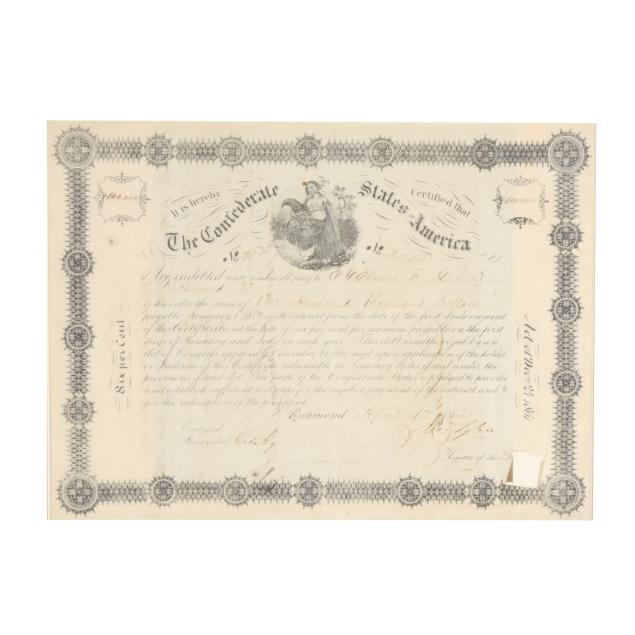 It is hereby Certified that
The Confederate States of America
No. No.
Are indebted unto and will pay to
Richmond
or order the sum of One Hundred Thousand Dollars
payable January 1 18 with interest from the date of the first Indorsement
of this Certificate at the rate of six per cent per annum payable on the first
days of January and July in each year. This debt is authorized by an
Act of Congress approved December 24 1861 and is on application of the holder
or Indorsee of this Certificate redeemable in Treasury Notes issued under the
provisions of said Act. The faith of the Confederate States is pledged to provide
and establish sufficient revenues for the regular payment of the interest and
for the redemption of the principal
Richmond April 17 1862
Entered
Recorded
Register of the
100,000
100,000
Six per Cent
Act of Dec. 24